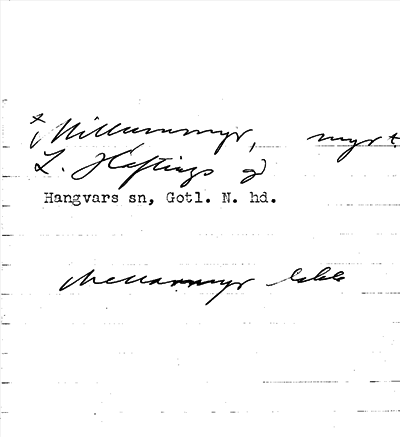 * Millummyr, myr t
L. Häftings gd
Hangvars sn, Gotl. N. hd.
Mellanmyr